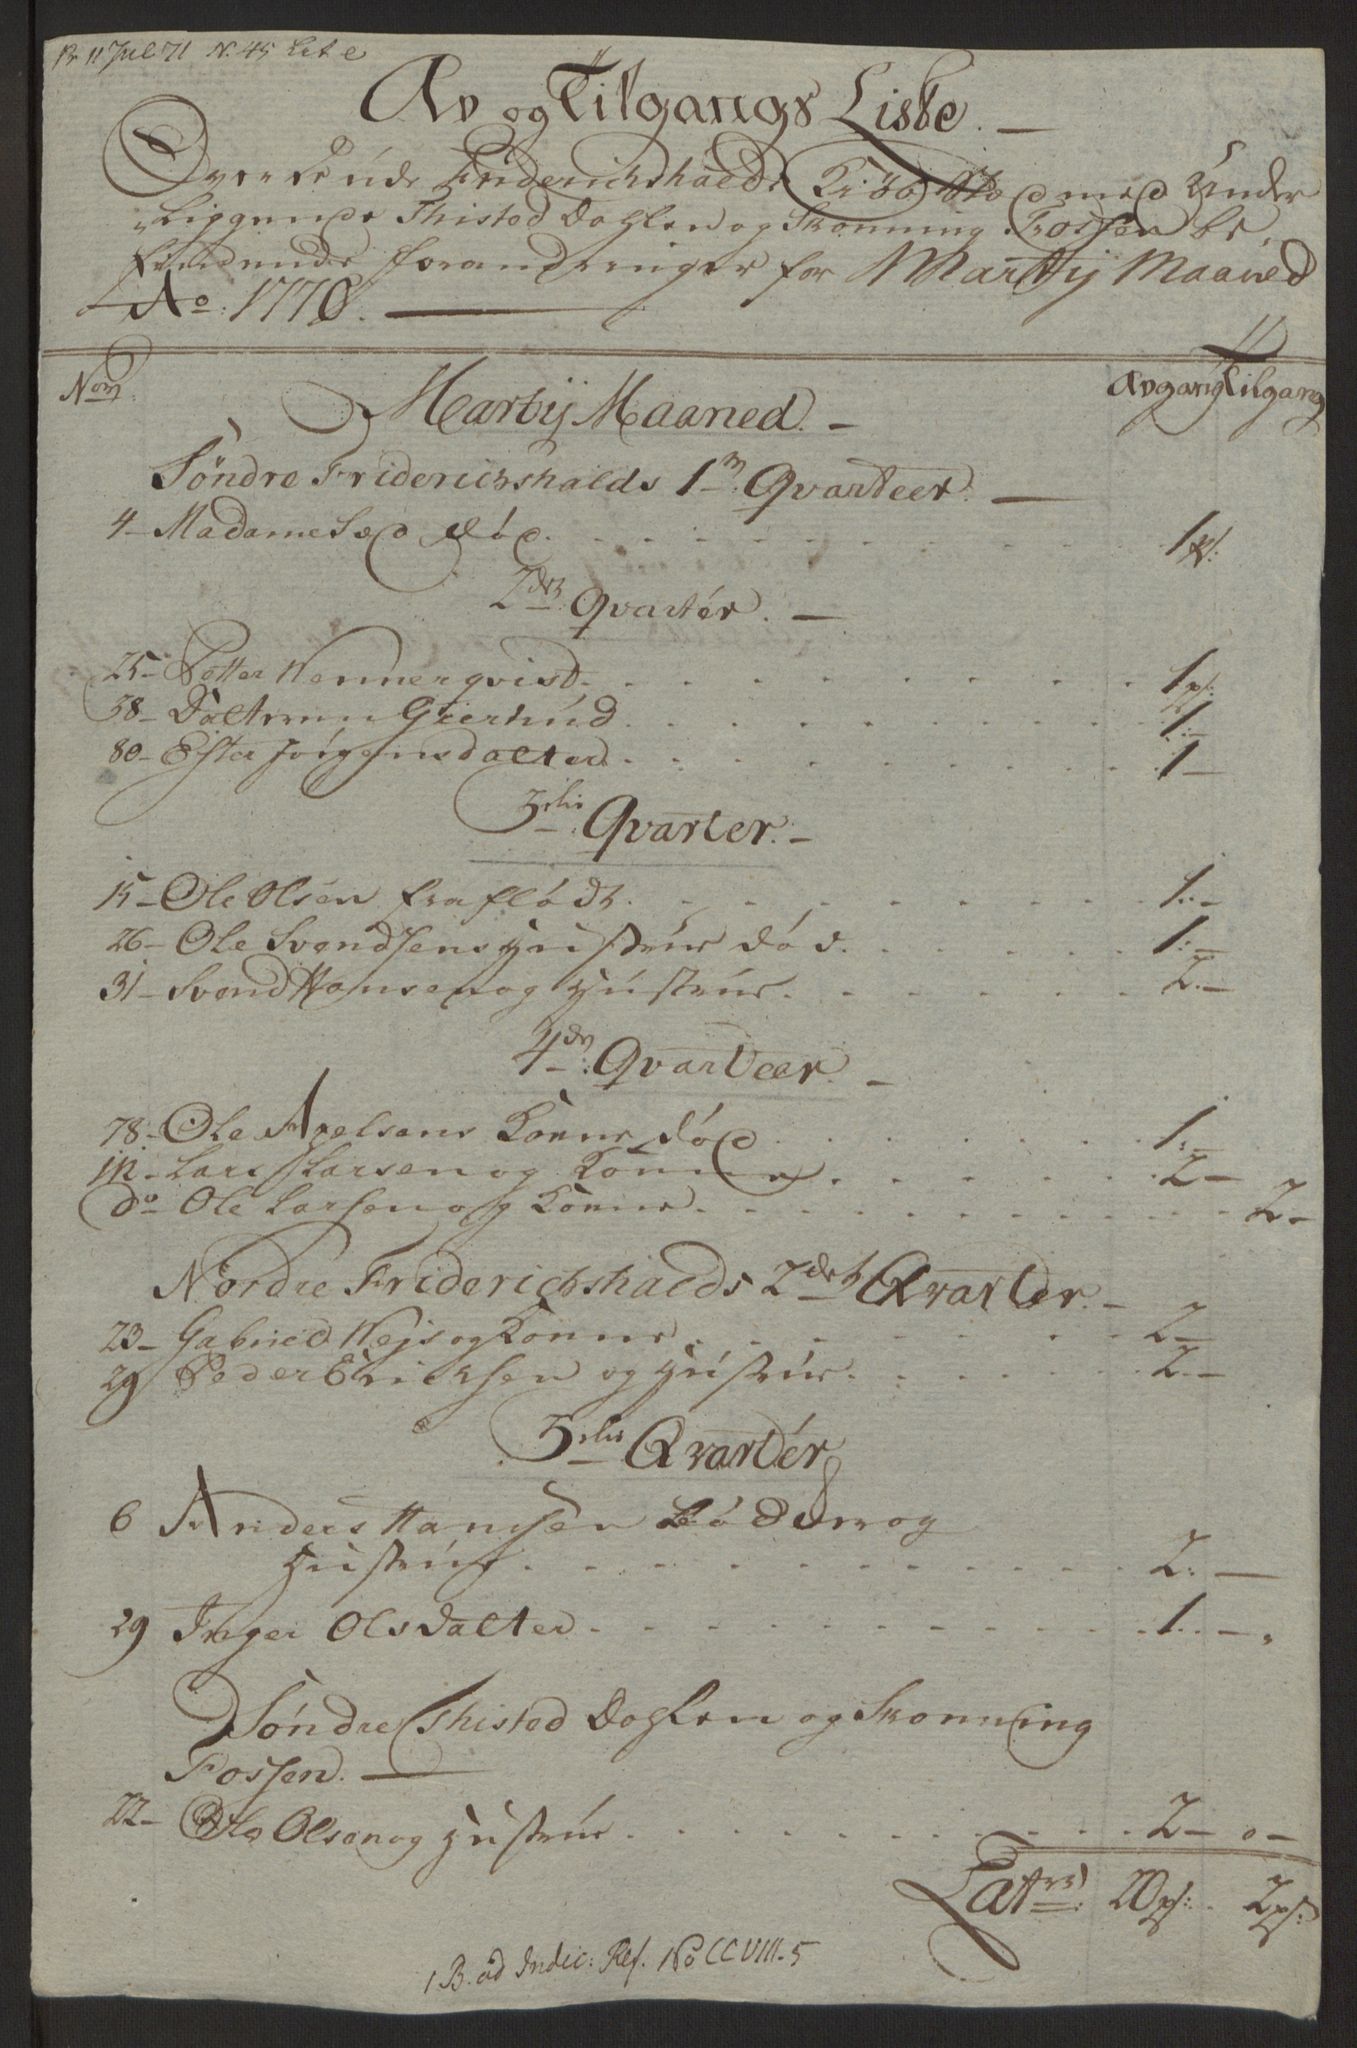 Pr 11 Jul 71 N. 45 Lit e
Av og Tilgangs Liste. —
Over de ude Friderichshalds Kiøb Stæd med Under
Liggende Thisted Dahlen og Skonning Fossen be
findende forandringer for Martij Maaned
Ao: 1770. —
Nom: Avgang Tilgang
Martij Maaned. —
Søndre Friderichshalds 1st Qvarteer. —
4 – Madame Sæd død. 1 ps:
2det Qvarter. —
25 – Petter Wennerqvist. 1 ps:
38 – Datteren Giertrud. 1 –
80 – Ester Jørgensdatter. 1 –
3die Qvarter. –
15 – Ole Olsen fra fløt. 1 –
26 – Ole Svendsens Hustrue død. 1 –
31 – Svend Hansen og Hustrue. 2 –
4de Qvarteer. –
78 – Ole Axelsens Konne død. 1 –
112 – Lars Larsen og Konne. 2 –
do – Ole Larsen og Konne. 2 –
Nordre Friderichshalds 2det Qvarter. –
23 – Gabriel Wejs og Konne. 2 –
29 Peder Ericksen og Hustrue. 2 –
3die Qvarter
6 Anders Hansen Bødker og
Hustrue. 2 –
29 Inger Olsdatter. 1 –
Søndre Thisted Dahlen og Skonning
Fossen. —
22 – Ole Olsen og Hustrue. 2 – 0 –
Latus 20 ps: 2 ps:
1 B. ad Indic: Ref. No CCVIII. 5